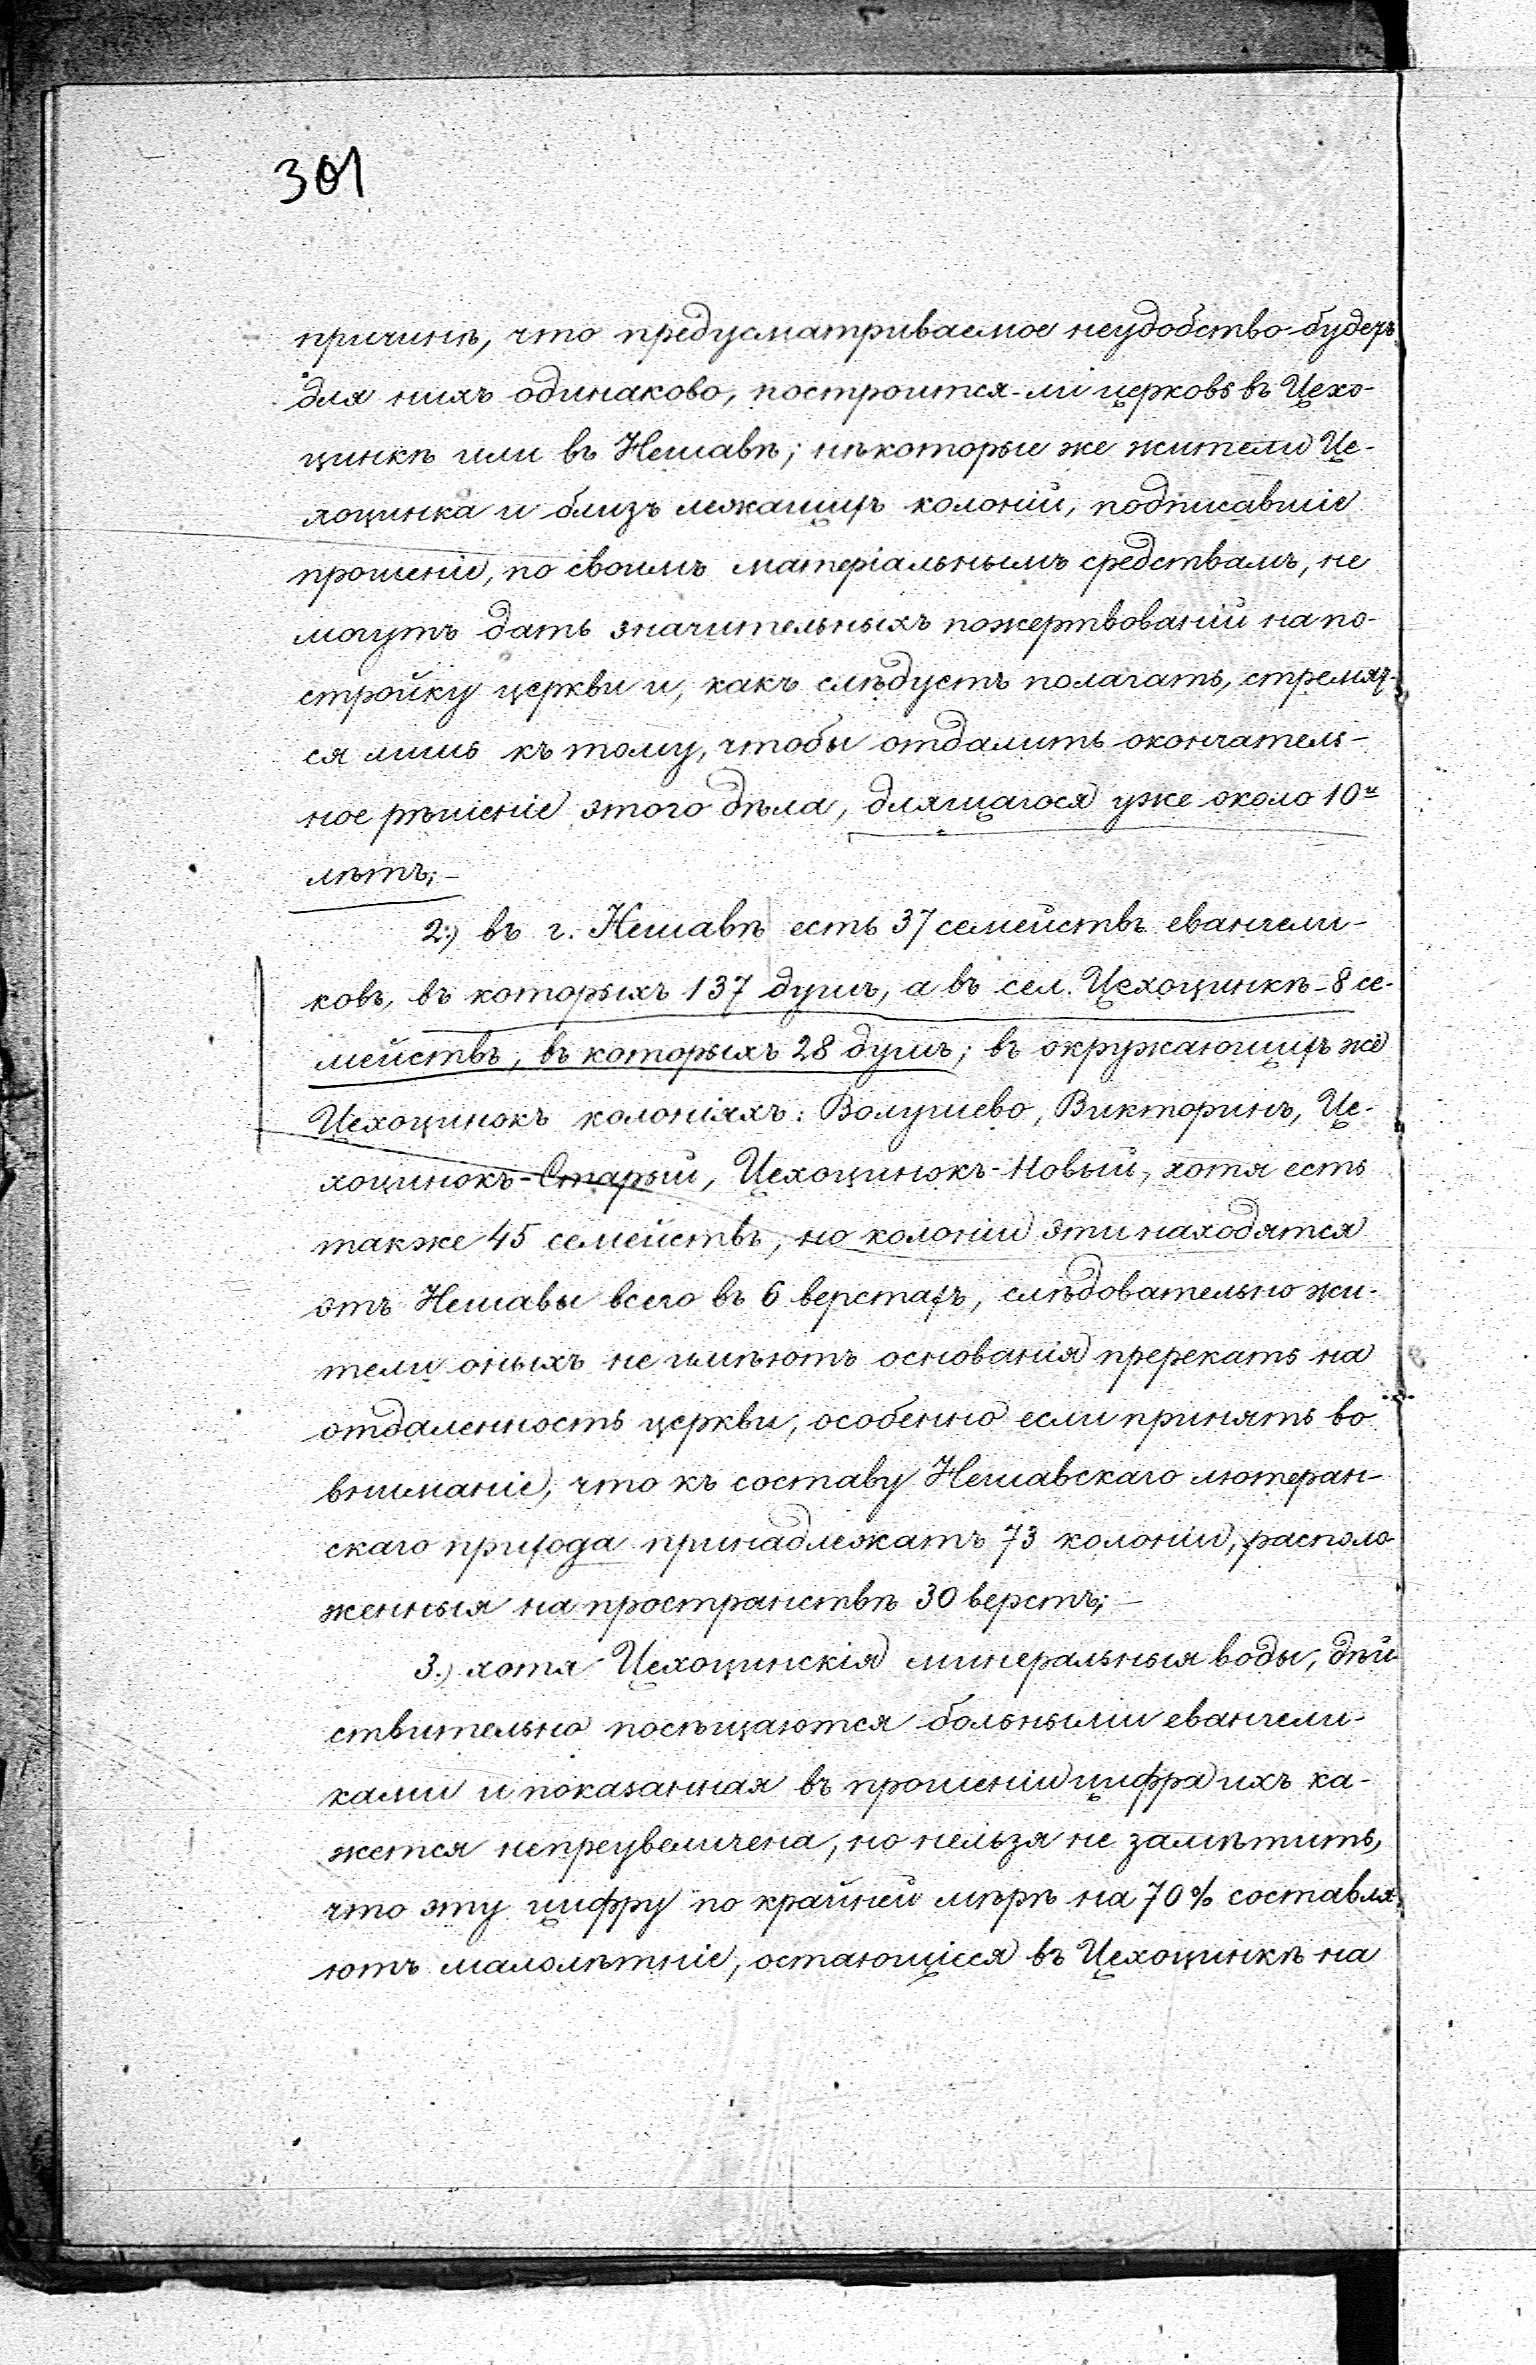 301
причинѣ, что предусматриваемое неудобство будетъ
для нихъ одинаково, построится-ли церковь въ Цехо-
цинкѣ или въ Нешавѣ; нѣкоторые же жители Це-
хоцинка и близъ лежащихъ колоній, подписавшіе
прошеніе, по своимъ матеріальнымъ средствамъ, не
могутъ дать значительныхъ пожертвованій на по-
стройку церкви и, какъ слѣдуетъ полагать, стремят-
ся лишь къ тому, чтобы отдалить окончатель-
ное рѣшеніе этого дѣла, длящагося уже около 10и
лѣтъ;-
2.) въ г. Нешавѣ есть 37 семействъ евангели-
ковъ, въ которыхъ 137 душъ, а въ сел. Цехоцинкѣ-8 се-
мействъ, въ которыхъ 28 душъ; въ окружающихъ же
Цехоцинокъ колоніяхъ: Волушево, Викторинъ, Це-
хоцинокъ-Старый, Цехоцинокъ-Новый, хотя есть
также 45 семействъ, но колоніи эти находятся
отъ Нешавы всего въ 6 верстахъ, слѣдовательно жи-
тели оныхъ не имѣютъ основанія пререкать на
отдаленность церкви, особенно если принять во
вниманіе, что къ составу Нешавскаго лютеран-
скаго прихода принадлежатъ 73 колоніи, располо
женныя на пространствѣ 30 верстъ;-
3.) хотя Цехоцинскія минеральныя воды, дѣй
ствительно посѣщаются больными евангели-
ками и показанная въ прошеніи цифра ихъ ка-
жется непреувеличена, но нельзя не замѣтить,
что эту цифру по крайней мѣрѣ на 70% составля
ютъ малолѣтніе, остающіеся въ Цехоцинкѣ на